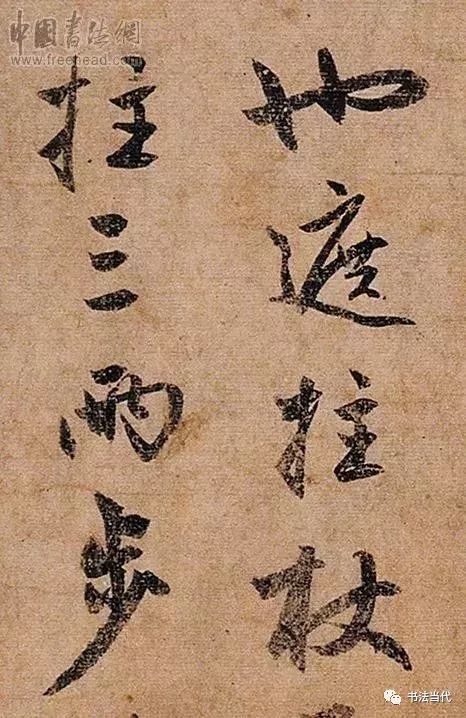 也遮拄杖
拄三兩步
中國書法網
www.freehead.com
书法当代